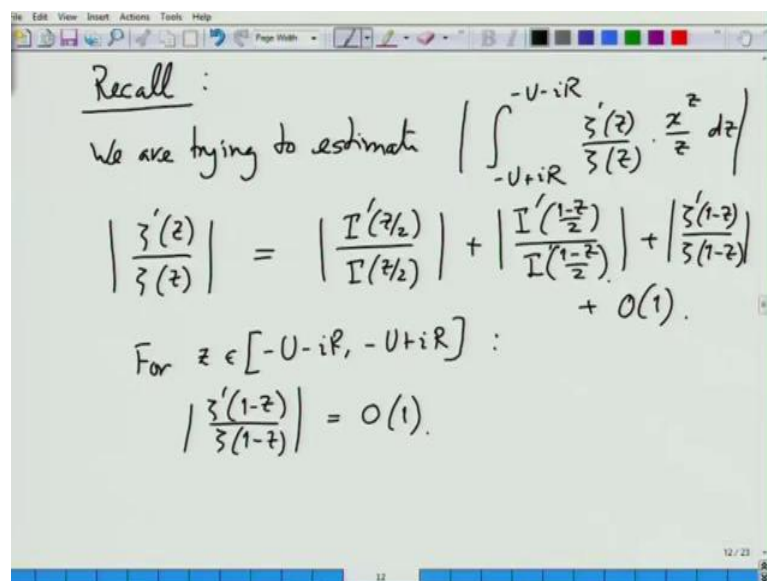 File Edit View Insert Actions Tools Help
Page Width
Recall :
We are trying to estimate | ∫_{-U+iR}^{-U-iR} ζ'(z)/ζ(z) · x^z/z dz |
| ζ'(z)/ζ(z) | = | Γ'(z/2)/Γ(z/2) | + | Γ'((1-z)/2)/Γ((1-z)/2) | + | ζ'(1-z)/ζ(1-z) |
+ O(1).
For z ∈ [-U-iR, -U+iR] :
| ζ'(1-z)/ζ(1-z) | = O(1).
12 / 23
12